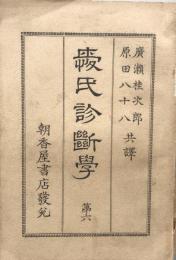 廣瀨桂次郎
原田八十八 共譯
氏診斷學
第六
朝香屋書店發兌